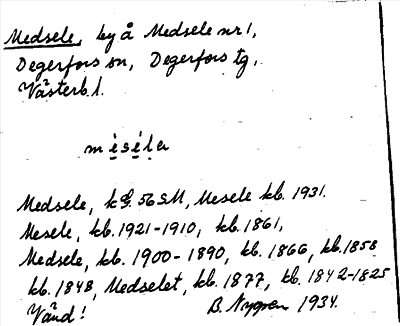 Medsele, by å Medsele nr 1,
Degerfors sn, Degerfors tg,
Västerb. l.
mèséla
Medsele, k 56 SM, Mesele kb. 1931.
Mesele, kb. 1921-1910, kb. 1861,
Medsele, kb. 1900-1890, kb. 1866, kb. 1858
kb. 1848, Medselet, kb. 1877, kb. 1842-1825
Vänd! B. Nygren 1934.